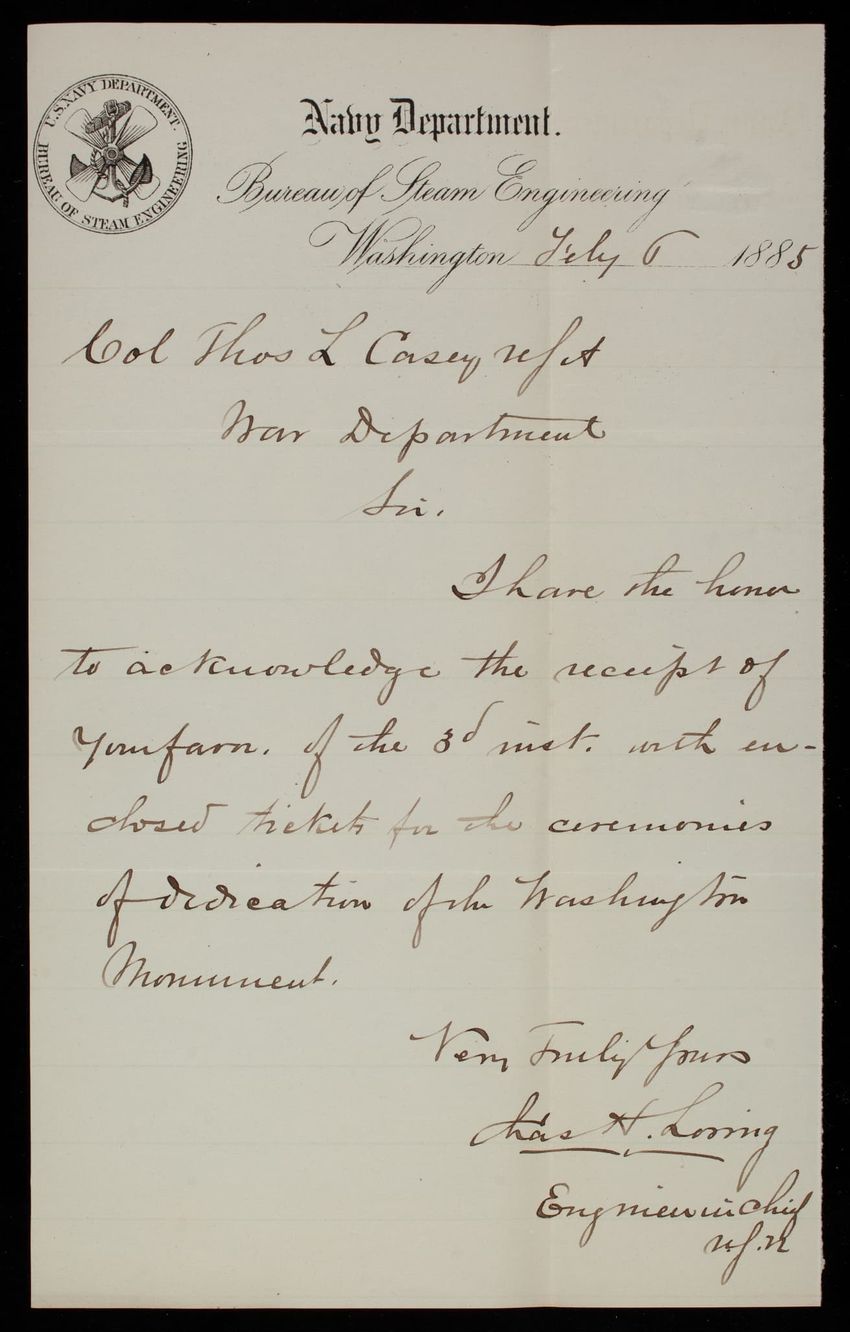 U.S. NAVY DEPARTMENT.
BUREAU OF STEAM ENGINEERING
Navy Department.
Bureau of Steam Engineering
Washington Feby 6 1885
Col Thos L Casey USA
War Department
Sir.
I have the honor
to acknowledge the receipt of
your favor. of the 3d inst. with en-
closed tickets for the ceremonies
of dedication of the Washington
Monument.
Very Truly Yours
Chas H. Loring
Engineer in Chief
U.S.N